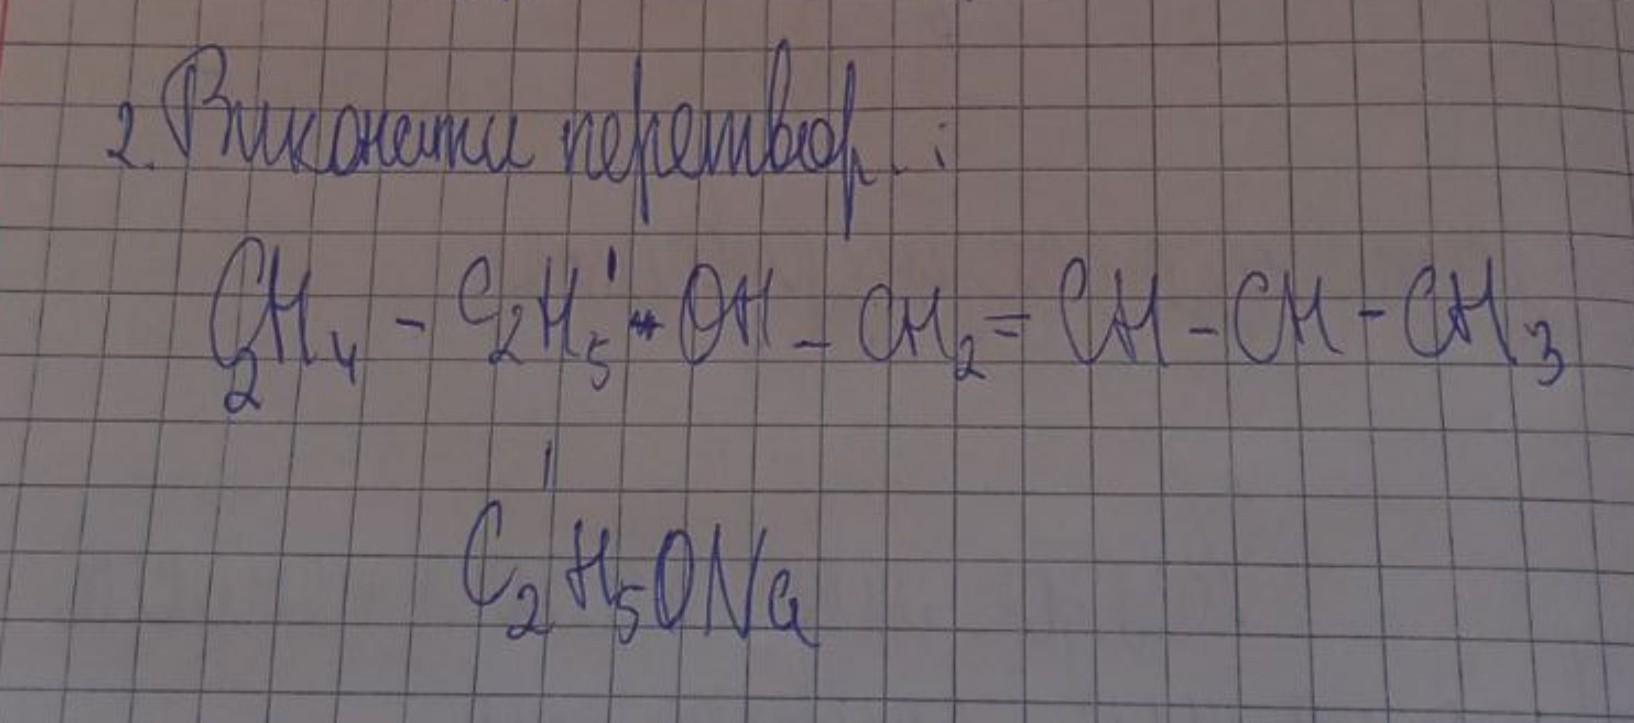 2. Виконати перетвор.:
C₂H₄ - C₂H₅ - OH - CH₂ = CH - CH - CH₃
C₂H₅ONa